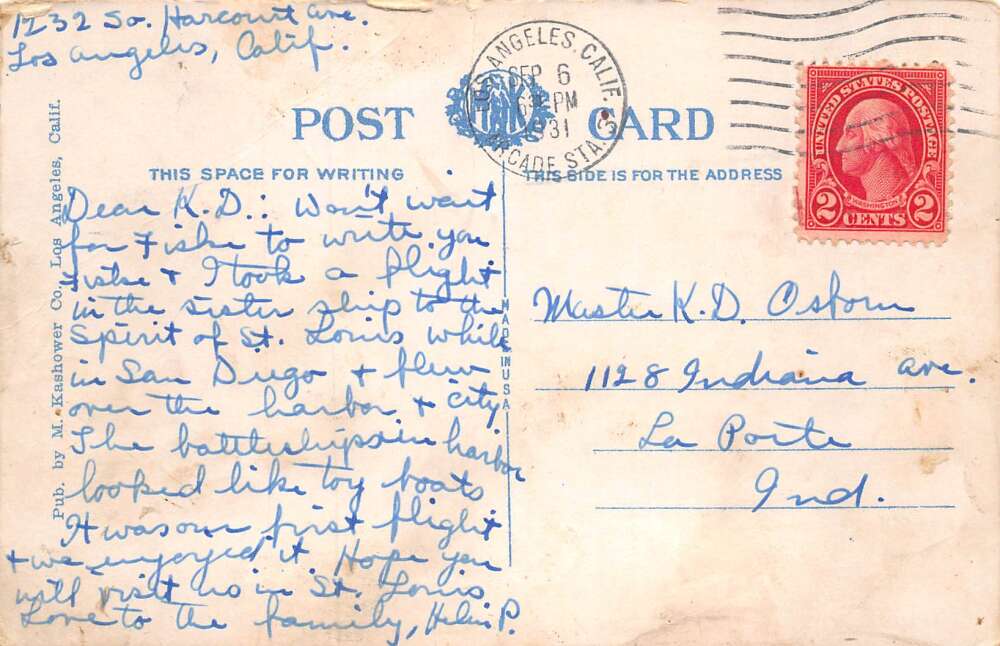 1232 So. Harcourt ave.
Los Angeles, Calif.
LOS ANGELES, CALIF.
SEP 6
PM
1931
ARCADE STA.
POST CARD
THIS SPACE FOR WRITING
THIS SIDE IS FOR THE ADDRESS
UNITED STATES POSTAGE
WASHINGTON
2 CENTS 2
Pub. by M. Kashower Co. Los Angeles, Calif.
MADE IN USA
Dear K.D.: Won't wait
for Fiske to write you
Fiske + I took a flight
in the sister ship to the
Spirit of St. Louis while
in San Diego + flew
over the harbor + city
The battleships in harbor
looked like toy boats
It was our first flight
+ we enjoyed it. Hope you
will visit us in St. Louis
Love to the family, Helen P.
Master K.D. Osborn
1128 Indiana ave.
La Porte
Ind.